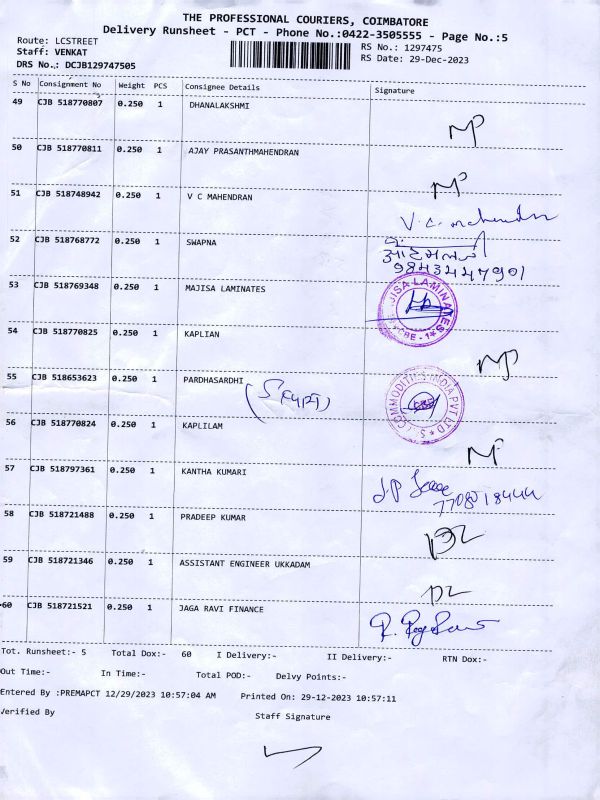 THE PROFESSIONAL COURIERS, COIMBATORE
Delivery Runsheet - PCT - Phone No.:0422-3505555 - Page No.:5
Route: LCSTREET
RS No.: 1297475
Staff: VENKAT
RS Date: 29-Dec-2023
DRS No.: DCJB129747505
S No Consignment No Weight PCS Consignee Details Signature
49 CJB 518770807 0.250 1 DHANALAKSHMI
NP
50 CJB 518770811 0.250 1 AJAY PRASANTHMAHENDRAN
NP
51 CJB 518748942 0.250 1 V C MAHENDRAN
V. C. mahendran
52 CJB 518768772 0.250 1 SWAPNA
53 CJB 518769348 0.250 1 MAJISA LAMINATES
JISA LAMINATES
CBE - 1
54 CJB 518770825 0.250 1 KAPLIAN
NP
55 CJB 518653623 0.250 1 PARDHASARDHI
COMMODITIES INDIA PVT LTD
56 CJB 518770824 0.250 1 KAPLILAM
NP
57 CJB 518797361 0.250 1 KANTHA KUMARI
7708018444
58 CJB 518721488 0.250 1 PRADEEP KUMAR
DL
59 CJB 518721346 0.250 1 ASSISTANT ENGINEER UKKADAM
DL
60 CJB 518721521 0.250 1 JAGA RAVI FINANCE
Tot. Runsheet:- 5 Total Dox:- 60 I Delivery:- II Delivery:- RTN Dox:-
Out Time:- In Time:- Total POD:- Delvy Points:-
Entered By :PREMAPCT 12/29/2023 10:57:04 AM Printed On: 29-12-2023 10:57:11
Verified By Staff Signature